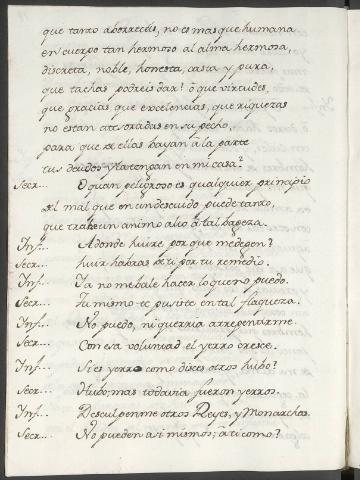 que tanto aborreceis, no es mas que humana
en cuerpo tan hermoso al alma hermosa,
discreta, noble, honesta, casta y pura,
que tachas podreis dar? ò que virtudes,
que gracias que excelencias, que riquezas
no estan atesoradas en su pecho,
para que de ellas hayan à la parte
tus deudos y la tengan en mi casa?
Secr... O quan peligroso es qualquier principio
del mal que en un descuido puede tanto,
que trahe un animo alto à tal bageza.
Ynf... Adonde huire por que me degen?
Secr... huir habras de ti por tu remedio.
Ynf... Ya no me bale hacer lo que no puedo.
Secr... Tu mismo te pusiste en tal flaqueza.
Ynf... No puedo, ni querria arrepentirme.
Secr... Con esa voluntad el yerro crece.
Ynf... Si es yerro como dices otros hubo?
Secr... Hubo; mas todavia fueron yerros.
Ynf... Desculpenme otros Reyes, y Monarchas.
Secr... No pueden a si mismos; à ti como?